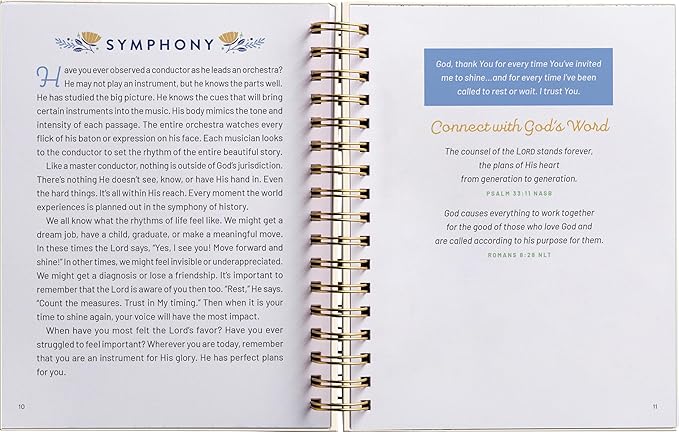 SYMPHONY
Have you ever observed a conductor as he leads an orchestra?
He may not play an instrument, but he knows the parts well.
He has studied the big picture. He knows the cues that will bring
certain instruments into the music. His body mimics the tone and
intensity of each passage. The entire orchestra watches every
flick of his baton or expression on his face. Each musician looks
to the conductor to set the rhythm of the entire beautiful story.
Like a master conductor, nothing is outside of God's jurisdiction.
There's nothing He doesn't see, know, or have His hand in. Even
the hard things. It's all within His reach. Every moment the world
experiences is planned out in the symphony of history.
We all know what the rhythms of life feel like. We might get a
dream job, have a child, graduate, or make a meaningful move.
In these times the Lord says, "Yes, I see you! Move forward and
shine!" In other times, we might feel invisible or underappreciated.
We might get a diagnosis or lose a friendship. It's important to
remember that the Lord is aware of you then too. "Rest," He says.
"Count the measures. Trust in My timing." Then when it is your
time to shine again, your voice will have the most impact.
When have you most felt the Lord's favor? Have you ever
struggled to feel important? Wherever you are today, remember
that you are an instrument for His glory. He has perfect plans
for you.
10
God, thank You for every time You've invited
me to shine...and for every time I've been
called to rest or wait. I trust You.
Connect with God's Word
The counsel of the LORD stands forever,
the plans of His heart
from generation to generation.
PSALM 33:11 NASB
God causes everything to work together
for the good of those who love God and
are called according to his purpose for them.
ROMANS 8:28 NLT
11